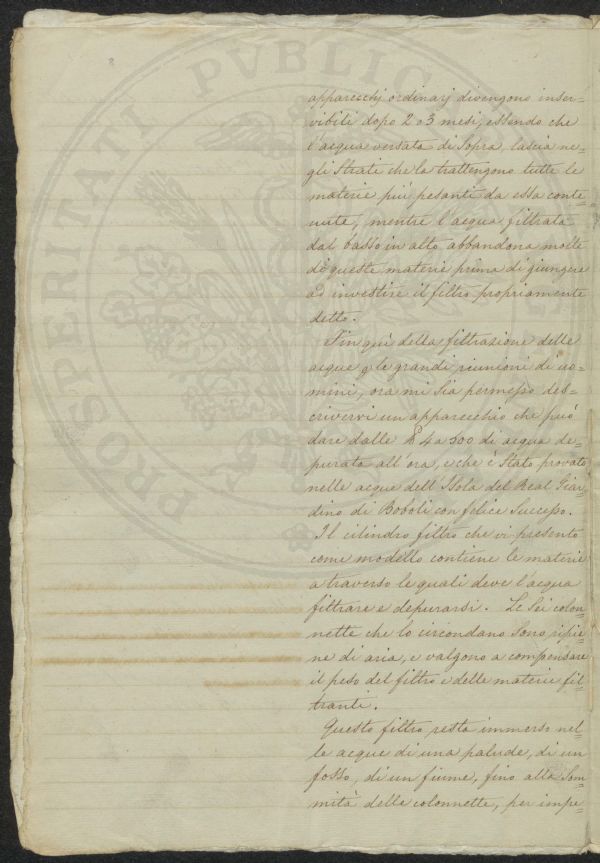 apparecchj ordinarj divengono inser=
vibili dopo 2 o 3 mesi, essendo che
l'acqua versata di Sopra, lascia ne=
gli Strati che la trattengono tutte le
materie più pesanti da essa conte=
nute, mentre l'acqua filtrata
dal basso in alto abbandona molte
di queste materie prima di giungere
ad investire il filtro propriamente
detto.
Fin quì della filtrazione delle
acque p le grandi riunioni di uo=
mini, ora mi Sia permesso des=
crivervi un apparecchio che può
dare dalle 4 a 500 di acqua de=
purata all'ora, e che è Stato provato
nelle acque dell'Isola del Real Giar=
dino di Boboli con felice Successo.
Il cilindro filtro che vi presento
come modello contiene le materie
a traverso le quali deve l'acqua
filtrare e depurarsi. Le Sei colon=
nette che lo circondano Sono ripie=
ne di aria, e valgono a compensare
il peso del filtro e delle materie fil=
tranti.
Questo filtro resta immerso nel=
le acque di una palude, di un
fosso, di un fiume, fino alla Som=
mità delle colonnette, per impe=
PROSPERITATI PVBLIC